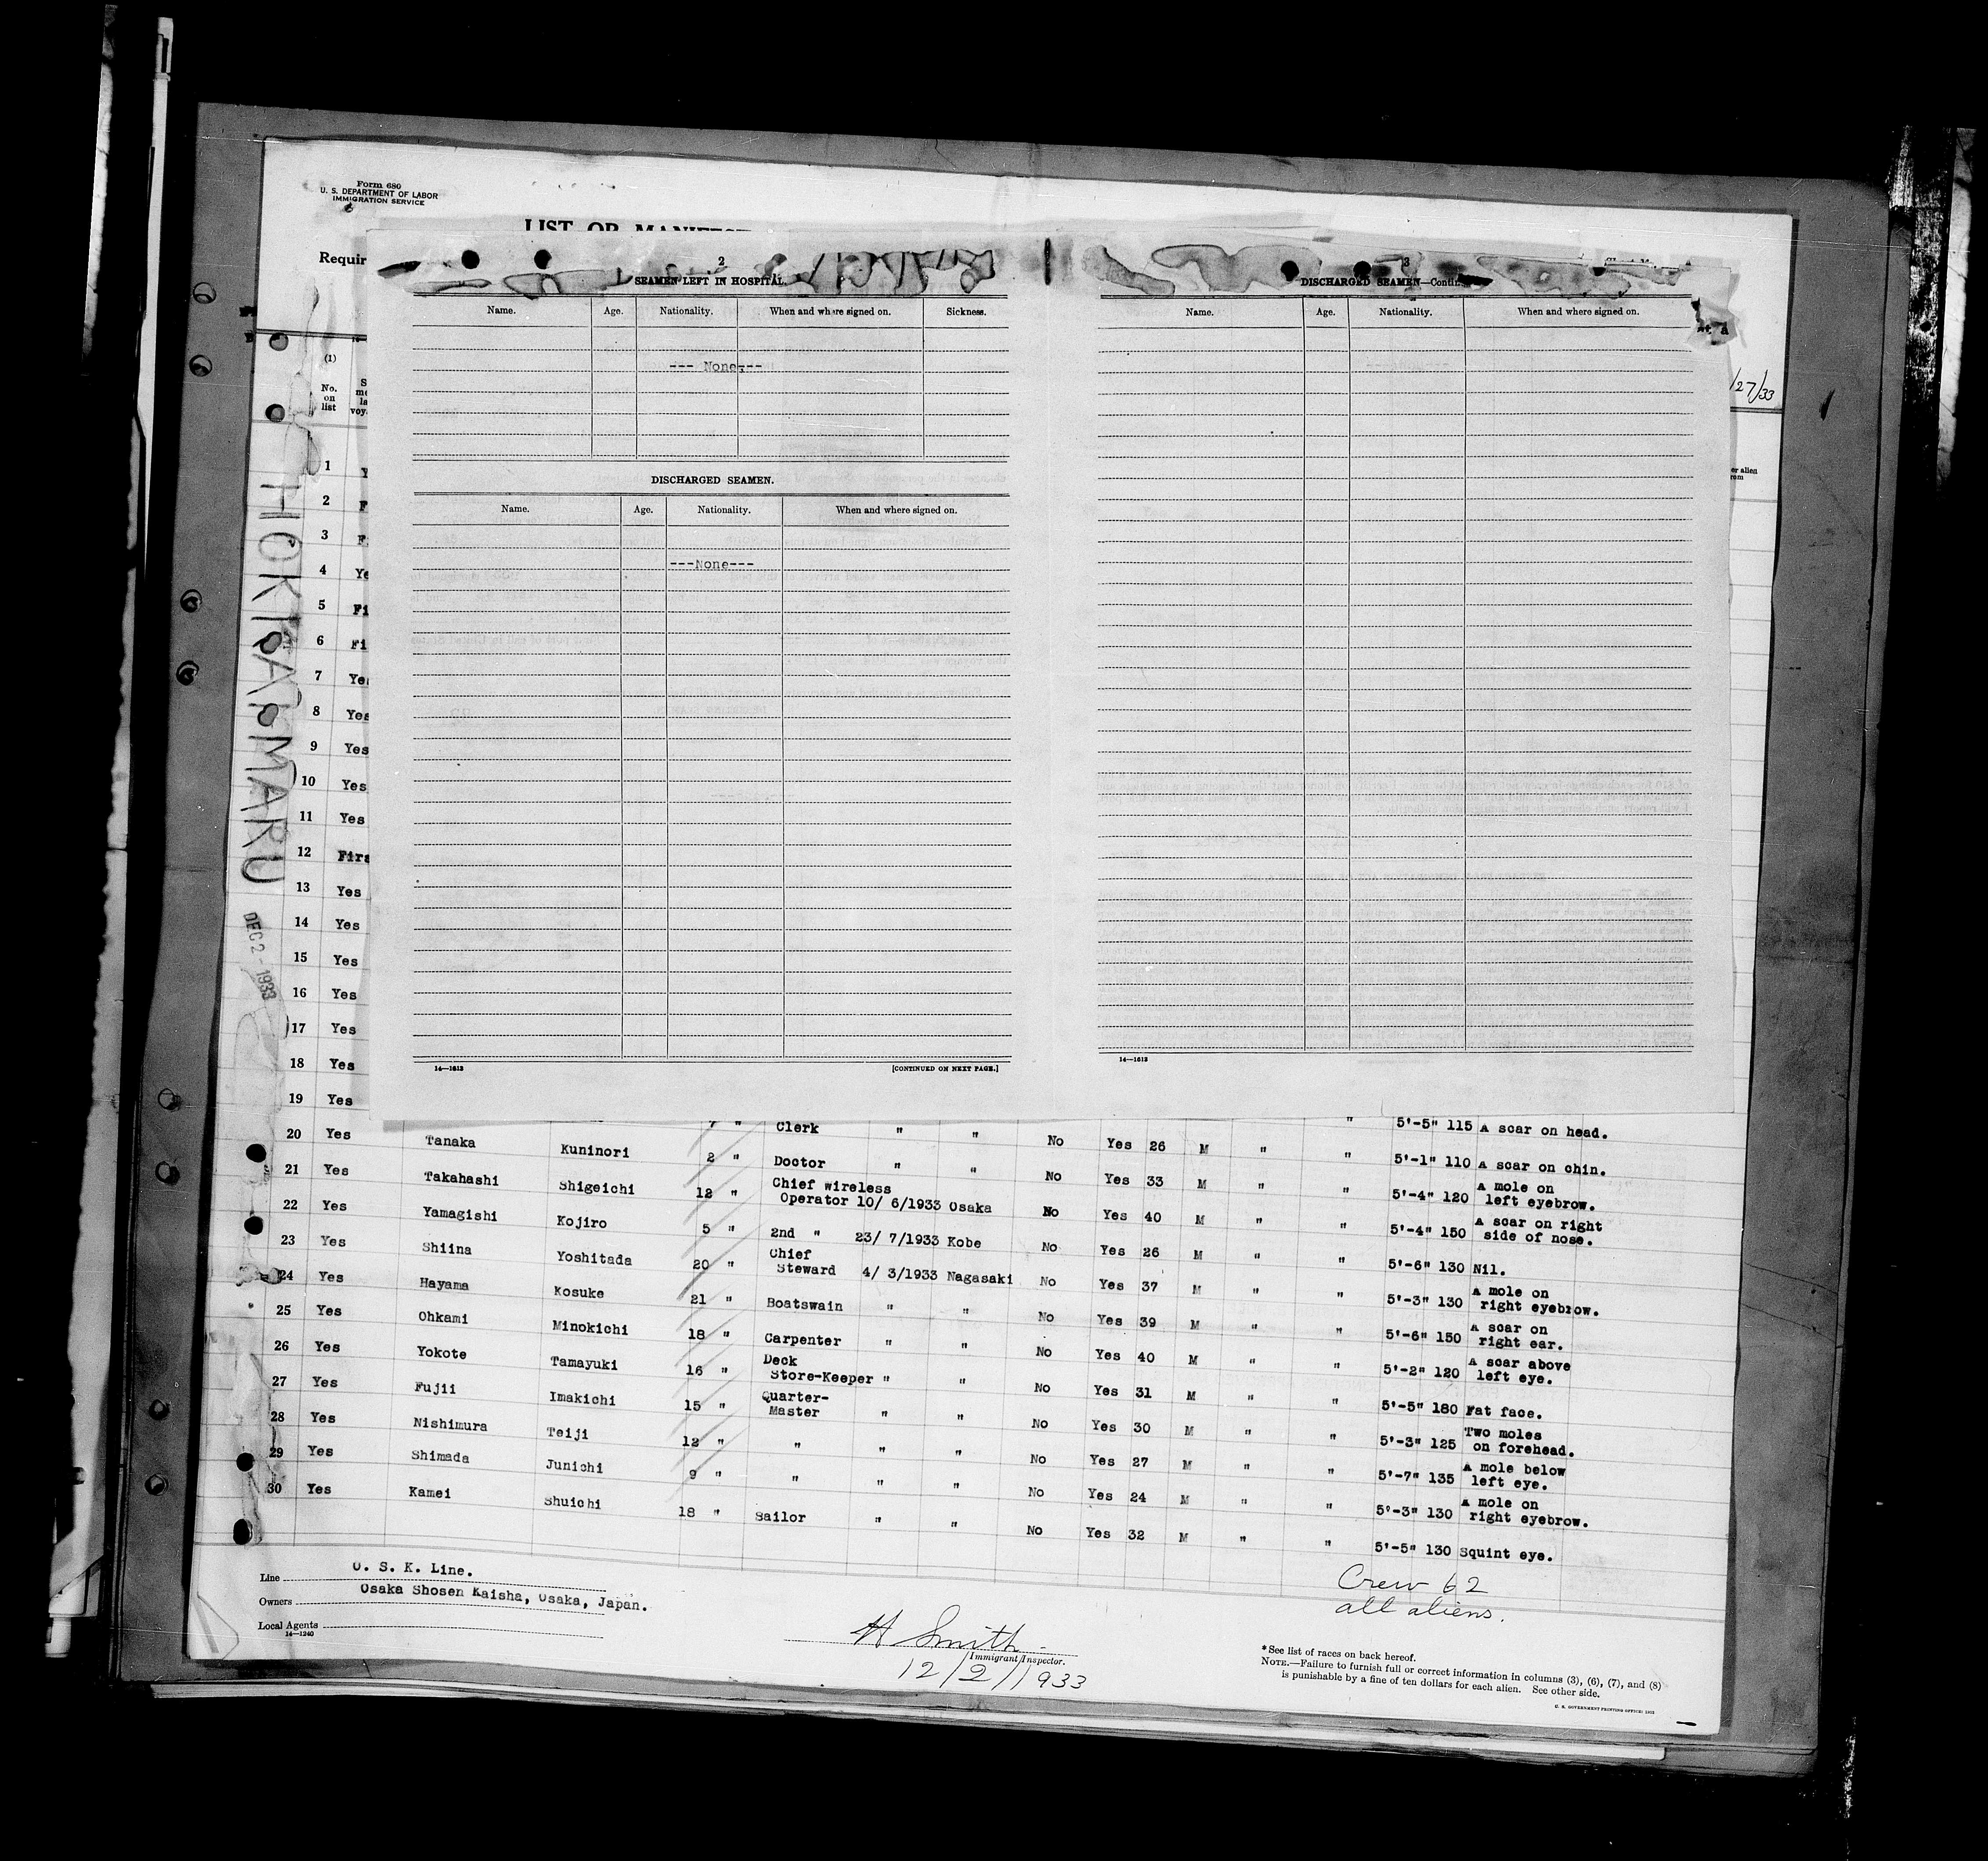 Form 680
U. S. DEPARTMENT OF LABOR
IMMIGRATION SERVICE
LIST OR MANIFEST
Requir
(1)
No.
on
list
/27/33
er alien
rom
2
SEAMEN LEFT IN HOSPITAL
Name. Age. Nationality. When and where signed on. Sickness.
--- None---
DISCHARGED SEAMEN.
Name. Age. Nationality. When and where signed on.
---None---
14—1613 [CONTINUED ON NEXT PAGE.]
3
DISCHARGED SEAMEN—Contin
Name. Age. Nationality. When and where signed on.
14—1613
HOKKAI MARU
DEC 2 - 1933
1 Y
2 F
3 F
4 Ye
5 Fi
6 Fi
7 Yes
8 Yes
9 Yes
10 Yes
11 Yes
12 Firs
13 Yes
14 Yes
15 Yes
16 Yes
17 Yes
18 Yes
19 Yes
7 " Clerk " " No Yes 26 M " " 5'-5" 115 A scar on head.
20 Yes Tanaka Kuninori 2 " Doctor " " No Yes 33 M " " 5'-1" 110 A scar on chin.
21 Yes Takahashi Shigeichi 12 " Chief wireless
Operator 10/ 6/1933 Osaka No Yes 40 M " " 5'-4" 120 A mole on
left eyebrow.
22 Yes Yamagishi Kojiro 5 " 2nd " 23/ 7/1933 Kobe No Yes 26 M " " 5'-4" 150 A scar on right
side of nose.
23 Yes Shiina Yoshitada 20 " Chief
Steward 4/ 3/1933 Nagasaki No Yes 37 M " " 5'-6" 130 Nil.
24 Yes Hayama Kosuke 21 " Boatswain " " No Yes 39 M " " 5'-3" 130 A mole on
right eyebrow.
25 Yes Ohkami Minokichi 18 " Carpenter " " No Yes 40 M " " 5'-6" 150 A scar on
right ear.
26 Yes Yokote Tamayuki 16 " Deck
Store-Keeper " " No Yes 31 M " " 5'-2" 120 A scar above
left eye.
27 Yes Fujii Imakichi 15 " Quarter-
Master " " No Yes 30 M " " 5'-5" 180 Fat face.
28 Yes Nishimura Teiji 12 " " " " No Yes 27 M " " 5'-3" 125 Two moles
on forehead.
29 Yes Shimada Junichi 9 " " " " No Yes 24 M " " 5'-7" 135 A mole below
left eye.
30 Yes Kamei Shuichi 18 " Sailor " " No Yes 32 M " " 5'-3" 130 A mole on
right eyebrow.
5'-5" 130 Squint eye.
Line O. S. K. Line.
Owners Osaka Shosen Kaisha, Osaka, Japan.
Local Agents
14—1240
Crew 62
all aliens.
H Smith
Immigrant Inspector.
12/2/1933
*See list of races on back hereof.
NOTE.—Failure to furnish full or correct information in columns (3), (6), (7), and (8)
is punishable by a fine of ten dollars for each alien. See other side.
U. S. GOVERNMENT PRINTING OFFICE: 1932